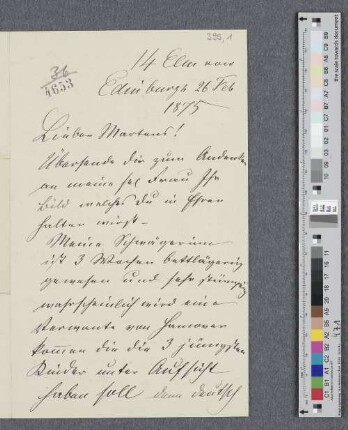 399,1
36
4653
14 Elm row
Edinburgh 26 Feb
1875
Lieber Martens!
Übersende dir zum Andenken
an meine sel Frau Ihr
Bild welches du in Ehren
halten wirst –
Meine Schwägerinn
ist 3 Wochen bettlägerig
gewesen und sehr
wahrscheinlich wird eine
Verwante von Hannover
komen die die 3 jüngsten
Kinder unter Aufsicht
haben soll denn deutsch